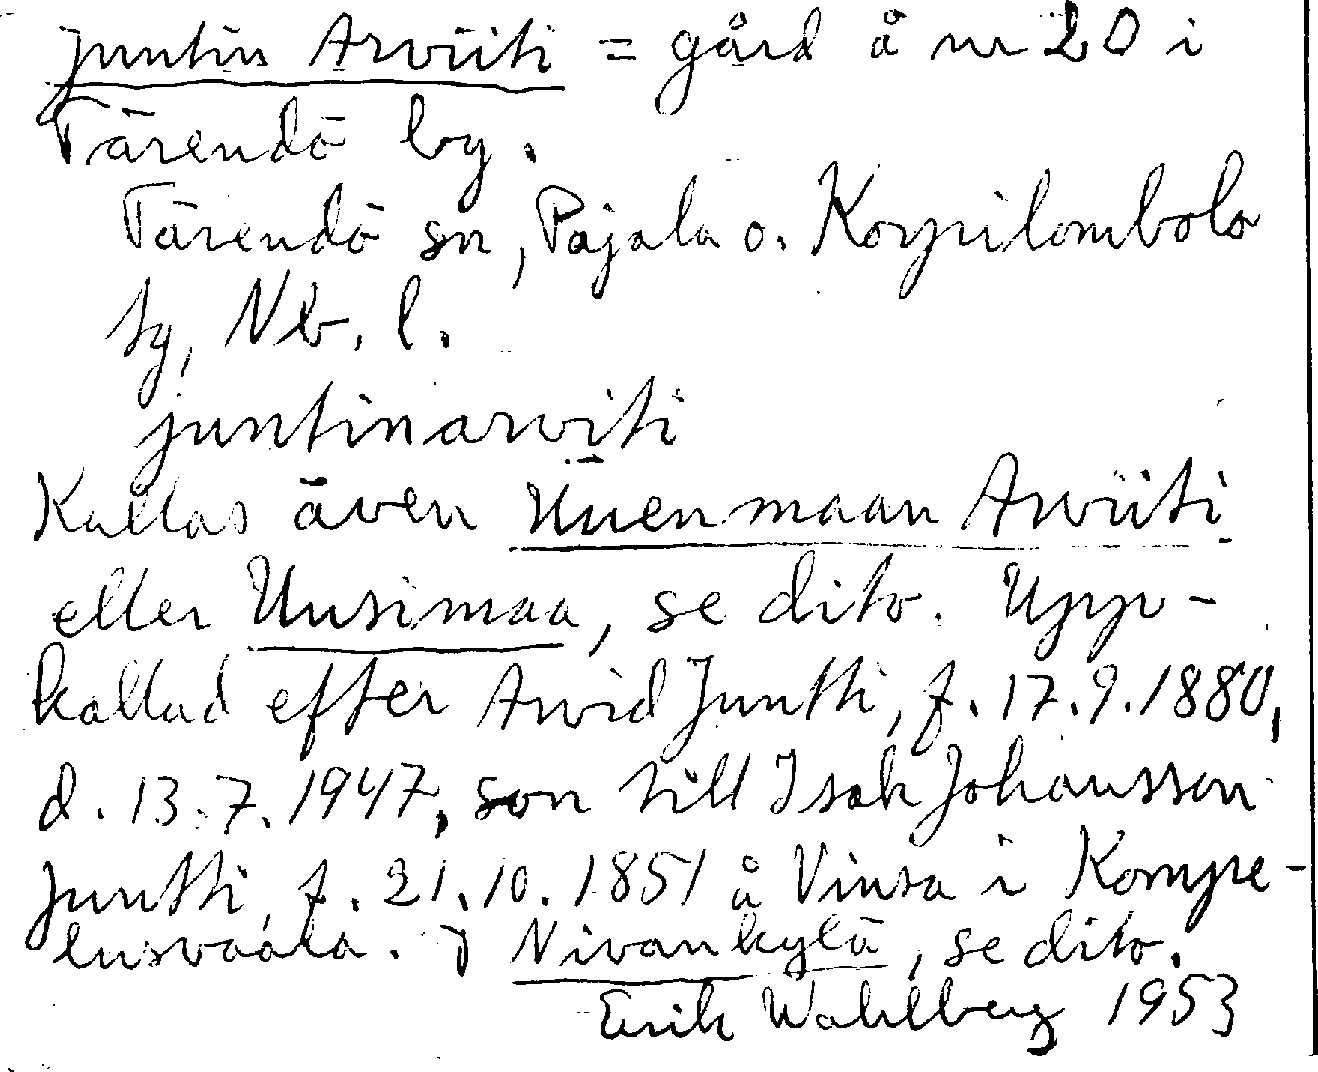 Juntin Arviiti = gård å nr 20 i
Tärendö by.
Tärendö sn, Pajala o. Korpilombolo
tg, Nb. l.
juntinarviti
Kallas även Uuenmaan Arviiti
eller Uusimaa, se dito. Upp-
kallad efter Arvid Juntti, f. 17.9.1880,
d. 13.7.1947, son till Isak Johansson
Juntti, f. 21.10.1851 å Vinsa i Kompe-
lusvaara. I Nivankylä, se dito.
Erik Wahlberg 1953